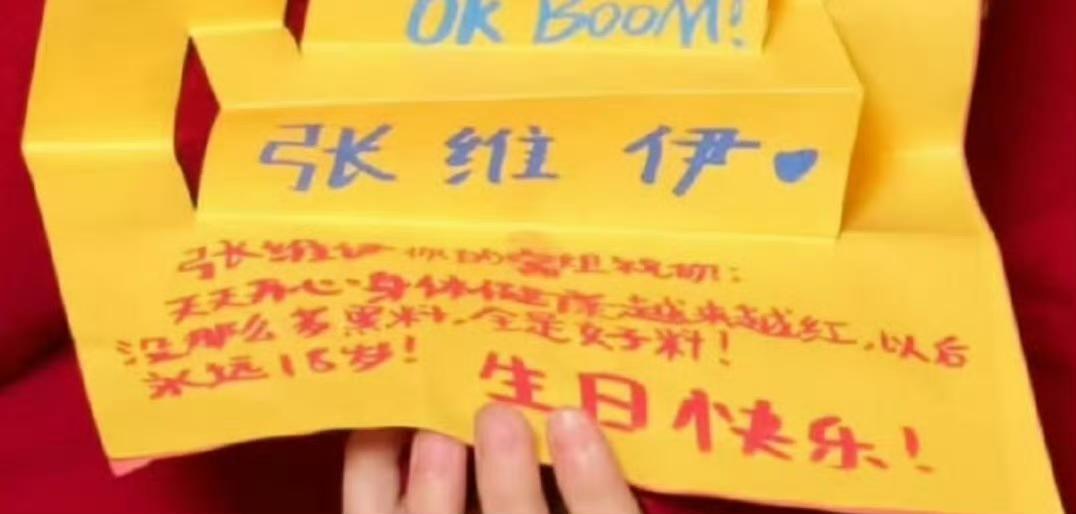 OK BOOM!
张维伊
张维伊你的窝姐祝你:
天天开心身体健康越来越红,以后
没那么多黑料,全是好料!
永远18岁!
生日快乐!